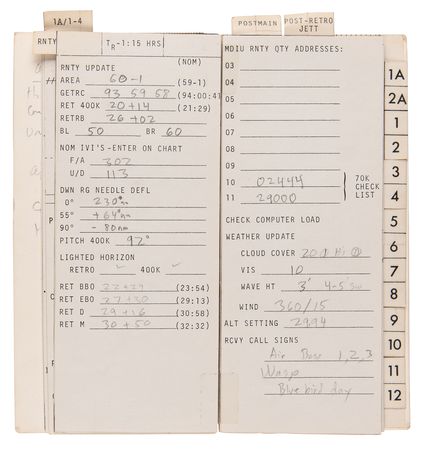 1A/1-4
RNTY
TR-1:15 HRS
RNTY UPDATE (NOM)
AREA 60-1 (59-1)
GETRC 93 59 58 (94:00:47
RET 400K 20+14 (21:29)
RETRB 26+02
BL 50 BR 60
NOM IVI'S-ENTER ON CHART
F/A 302
U/D 113
DWN RG NEEDLE DEFL
0° 230 nm
55° +64 nm
90° -80 nm
PITCH 400K 92°
LIGHTED HORIZON
RETRO ✓ 400K ✓
RET BBO 22+29 (23:54)
RET EBO 27+50 (29:13)
RET D 29+16 (30:58)
RET M 30+50 (32:32)
POSTMAIN
POST-RETRO
JETT
MDIU RNTY QTY ADDRESSES:
03
04
05
06
07
08
09
10 02444
11 29000
70K
CHECK
LIST
CHECK COMPUTER LOAD
WEATHER UPDATE
CLOUD COVER
VIS 10
WAVE HT 3' 4-5'
WIND 360/15
ALT SETTING 2994
RCVY CALL SIGNS
Air Boss 1,2,3
Wasp
Blue bird day
1A
2A
1
2
3
4
5
6
7
8
9
10
11
12